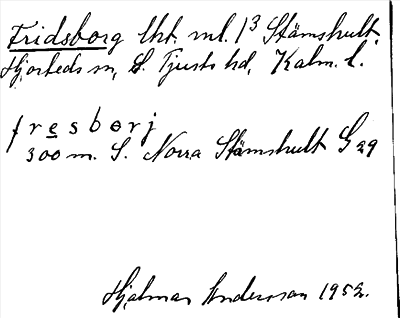 Fridsborg lht. ml. 1³ Stämshult,
Hjorteds sn, S. Tjusts hd, Kalm. l.
fresborj
300 m. S. Norra Stämshult G 29
Hjalmar Andersson 1952.